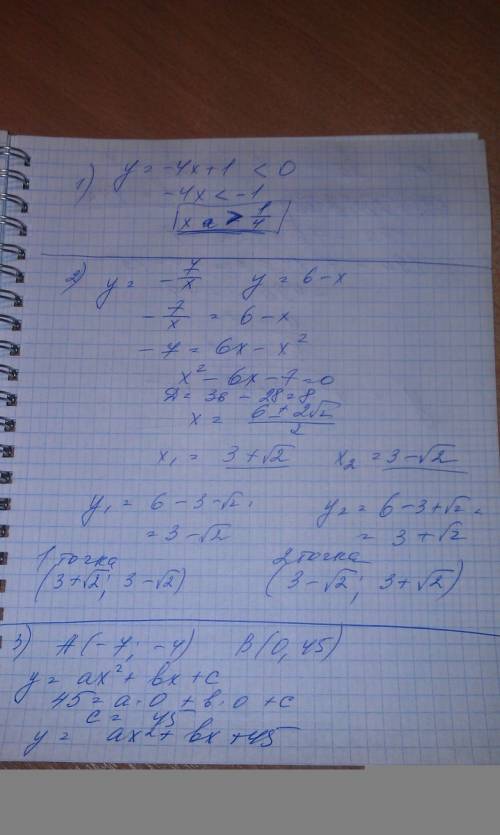 1) y = -4x+1 < 0
-4x < -1
x > 1/4
2) y = - 7/x y = 6-x
- 7/x = 6-x
-7 = 6x - x²
x² - 6x - 7 = 0
D = 36 - 28 = 8
x = (6 ± 2√2)/2
x₁ = 3+√2 x₂ = 3-√2
y₁ = 6-3-√2 = y₂ = 6-3+√2 =
= 3-√2 = 3+√2
1 точка 2 точка
(3+√2; 3-√2) (3-√2; 3+√2)
3) A(-7; -4) B(0,45)
y = ax² + bx + c
45 = a·0 + b·0 + c
c = 45
y = ax² + bx + 45